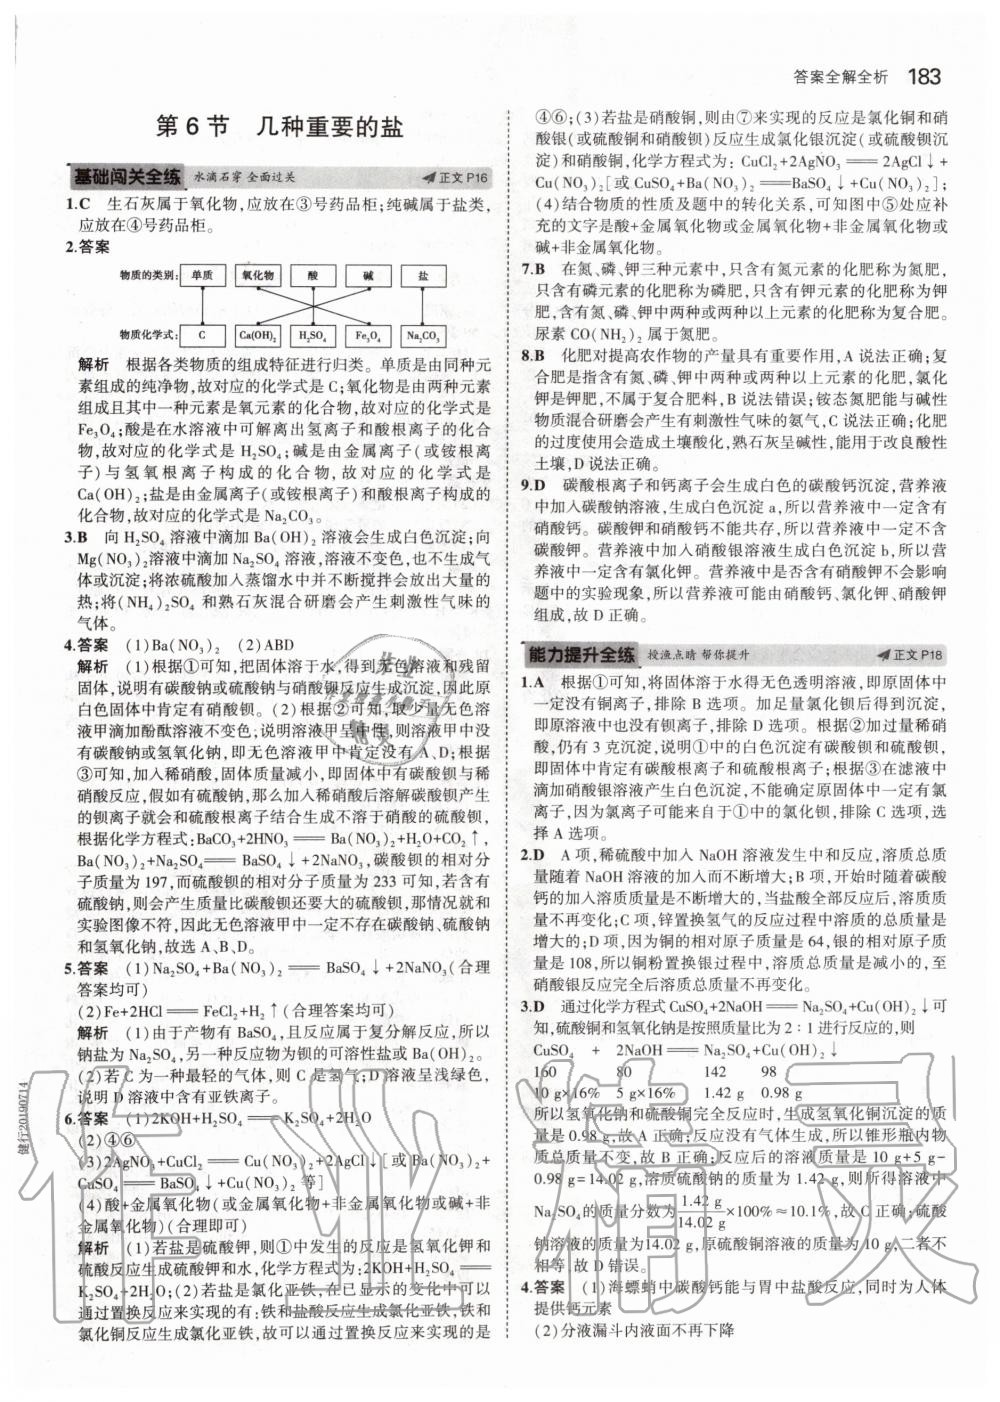 答案全解全析 183
第6节 几种重要的盐
基础闯关全练 水滴石穿 全面过关 正文P16
1.C 生石灰属于氧化物,应放在③号药品柜;纯碱属于盐类,
应放在④号药品柜。
2.答案
物质的类别: 单质 氧化物 酸 碱 盐
物质化学式: C Ca(OH)₂ H₂SO₄ Fe₃O₄ Na₂CO₃
解析 根据各类物质的组成特征进行归类。单质是由同种元
素组成的纯净物,故对应的化学式是C;氧化物是由两种元素
组成且其中一种元素是氧元素的化合物,故对应的化学式是
Fe₃O₄;酸是在水溶液中可解离出氢离子和酸根离子的化合
物,故对应的化学式是H₂SO₄;碱是由金属离子(或铵根离
子)与氢氧根离子构成的化合物,故对应的化学式是
Ca(OH)₂;盐是由金属离子(或铵根离子)和酸根离子构成的
化合物,故对应的化学式是Na₂CO₃。
3.B 向H₂SO₄溶液中滴加Ba(OH)₂溶液会生成白色沉淀;向
Mg(NO₃)₂溶液中滴加Na₂SO₄溶液,溶液不变色,也不生成气
体或沉淀;将浓硫酸加入蒸馏水中并不断搅拌会放出大量的
热;将(NH₄)₂SO₄和熟石灰混合研磨会产生刺激性气味的
气体。
4.答案 (1)Ba(NO₃)₂ (2)ABD
解析 (1)根据①可知,把固体溶于水,得到无色溶液和残留
固体,说明有碳酸钠或硫酸钠与硝酸钡反应生成沉淀,因此原
白色固体中肯定有硝酸钡。(2)根据②可知,取少量无色溶
液甲滴加酚酞溶液不变色;说明溶液甲呈中性,则溶液甲中没
有碳酸钠或氢氧化钠,即无色溶液甲中肯定没有A、D;根据
③可知,加入稀硝酸,固体质量减小,即固体中有碳酸钡与稀
硝酸反应,假如有硫酸钠,那么加入稀硝酸后溶解碳酸钡产生
的钡离子就会和硫酸根离子结合生成不溶于硝酸的硫酸钡,
根据化学方程式:BaCO₃+2HNO₃══Ba(NO₃)₂+H₂O+CO₂↑,
Ba(NO₃)₂+Na₂SO₄══BaSO₄↓+2NaNO₃,碳酸钡的相对分
子质量为197,而硫酸钡的相对分子质量为233可知,若含有
硫酸钠,则会产生质量比碳酸钡还要大的硫酸钡,那情况就和
实验图像不符,因此无色溶液甲中一定不存在碳酸钠、硫酸钠
和氢氧化钠,故选A、B、D。
5.答案 (1)Na₂SO₄+Ba(NO₃)₂══BaSO₄↓+2NaNO₃(合理
答案均可)
(2)Fe+2HCl══FeCl₂+H₂↑(合理答案均可)
解析 (1)由于产物有BaSO₄,且反应属于复分解反应,所以
钠盐为Na₂SO₄,另一种反应物为钡的可溶性盐或Ba(OH)₂。
(2)若C为一种最轻的气体,则C是氢气;F溶液呈浅绿色,
说明D溶液中含有亚铁离子。
6.答案 (1)2KOH+H₂SO₄══K₂SO₄+2H₂O
(2)④⑥
(3)2AgNO₃+CuCl₂══Cu(NO₃)₂+2AgCl↓[或Ba(NO₃)₂+
CuSO₄══BaSO₄↓+Cu(NO₃)₂等]
(4)酸+金属氧化物(或金属氧化物+非金属氧化物或碱+非
金属氧化物)(合理即可)
解析 (1)若盐是硫酸钾,则①中发生的反应是氢氧化钾和
硫酸反应生成硫酸钾和水,化学方程式为:2KOH+H₂SO₄══
K₂SO₄+2H₂O;(2)若盐是氯化亚铁,在已显示的变化中可以
通过置换反应来实现的有:铁和盐酸反应生成氯化亚铁,铁和
氯化铜反应生成氯化亚铁,故可以通过置换反应来实现的是
④⑥;(3)若盐是硝酸铜,则由⑦来实现的反应是氯化铜和硝
酸银(或硫酸铜和硝酸钡)反应生成氯化银沉淀(或硫酸钡沉
淀)和硝酸铜,化学方程式为:CuCl₂+2AgNO₃══2AgCl↓+
Cu(NO₃)₂[或CuSO₄+Ba(NO₃)₂══BaSO₄↓+Cu(NO₃)₂];
(4)结合物质的性质及题中的转化关系,可知图中⑤处应补
充的文字是酸+金属氧化物或金属氧化物+非金属氧化物或
碱+非金属氧化物。
7.B 在氮、磷、钾三种元素中,只含有氮元素的化肥称为氮肥,
只含有磷元素的化肥称为磷肥,只含有钾元素的化肥称为钾
肥,含有氮、磷、钾中两种或两种以上元素的化肥称为复合肥。
尿素CO(NH₂)₂属于氮肥。
8.B 化肥对提高农作物的产量具有重要作用,A说法正确;复
合肥是指含有氮、磷、钾中两种或两种以上元素的化肥,氯化
钾是钾肥,不属于复合肥料,B说法错误;铵态氮肥能与碱性
物质混合研磨会产生有刺激性气味的氨气,C说法正确;化肥
的过度使用会造成土壤酸化,熟石灰呈碱性,能用于改良酸性
土壤,D说法正确。
9.D 碳酸根离子和钙离子会生成白色的碳酸钙沉淀,营养液
中加入碳酸钠溶液,生成白色沉淀a,所以营养液中一定含有
硝酸钙。碳酸钾和硝酸钙不能共存,所以营养液中一定不含
碳酸钾。营养液中加入硝酸银溶液生成白色沉淀b,所以营
养液中一定含有氯化钾。营养液中是否含有硝酸钾不会影响
题中的实验现象,所以营养液可能由硝酸钙、氯化钾、硝酸钾
组成,故D正确。
能力提升全练 授渔点睛 帮你提升 正文P18
1.A 根据①可知,将固体溶于水得无色透明溶液,即原固体中
一定没有铜离子,排除B选项。加足量氯化钡后得到沉淀,
即原溶液中也没有钡离子,排除D选项。根据②加过量稀硝
酸,仍有3克沉淀,说明①中的白色沉淀有碳酸钡和硫酸钡,
即固体中肯定有碳酸根离子和硫酸根离子;根据③在滤液中
滴加硝酸银溶液产生白色沉淀,不能确定原固体中一定有氯
离子,因为氯离子可能来自于①中的氯化钡,排除C选项,选
择A选项。
2.D A项,稀硫酸中加入NaOH溶液发生中和反应,溶质总质
量随着NaOH溶液的加入而不断增大;B项,开始时随着碳酸
钙的加入溶质质量是不断增大的,当盐酸全部反应后,溶质质
量不再变化;C项,锌置换氢气的反应过程中溶质的总质量是
增大的;D项,因为铜的相对原子质量是64,银的相对原子质
量是108,所以铜粉置换银过程中,溶质总质量是减小的,至
硝酸银反应完全后溶质总质量不再变化。
3.D 通过化学方程式CuSO₄+2NaOH══Na₂SO₄+Cu(OH)₂↓可
知,硫酸铜和氢氧化钠是按照质量比为2:1进行反应的,则
CuSO₄ + 2NaOH══Na₂SO₄+Cu(OH)₂↓
160 80 142 98
10 g×16% 5 g×16% 1.42 g 0.98 g
所以氢氧化钠和硫酸铜完全反应时,生成氢氧化铜沉淀的质
量是0.98 g,故A正确;反应没有气体生成,所以锥形瓶内物
质总质量不变,故B正确;反应后的溶液质量是10 g+5 g-
0.98 g=14.02 g,溶质硫酸钠的质量为1.42 g,则所得溶液中
Na₂SO₄的质量分数为1.42 g/14.02 g×100%≈10.1%,故C正确;硫酸
钠溶液的质量为14.02 g,原硫酸铜溶液的质量为10 g,二者不
相等,故D错误。
4.答案 (1)海螵蛸中碳酸钙能与胃中盐酸反应,同时为人体
提供钙元素
(2)分液漏斗内液面不再下降
健行20190714
作业精灵